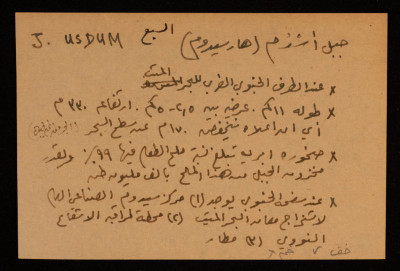 السبع
J. USDUM
جبل أسدوم (هار سيدوم)
x عند الطرف الجنوبي الغربي للبحر الميت
x طوله ١١ كم. عرضه بين ٢،٥ - ٥ كم. ارتفاعه ٣٣٠ م
أي أن أعلاه منخفضة ١٧٠ م عن سطح البحر
x صخوره تبلغ نسبة ملح الطعام فيها ٩٩٪ وتقدر
مخزون الجبل من هذا الملح بألف مليون طن
x عند سفحه الجنوبي يوجد (١) مركز سيدوم الصناعي
لاستخراج معادن البحر الميت (٢) محطة لمراقبة الاشعاع
النووي (٣) مطار